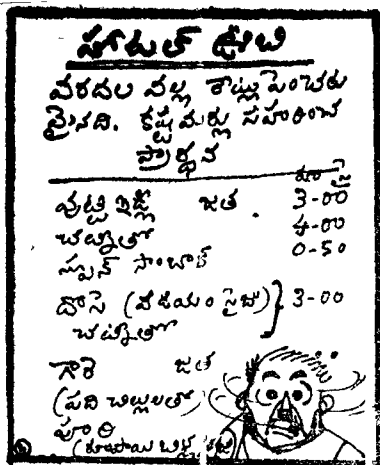 హోటల్ ఊటి
వరదల వల్ల రేట్లు పెంచబడు
నైనది. కష్టమర్లు సహరించ
ప్రార్థన
రూ పై
వుట్టి ఇడ్లీ జత . 3-00
చట్నీతో 4-00
స్పూన్ సాంబార్ 0-50
దోసె (వడియం సైజు) } 3-00
చట్నీతో
గారె జత
(పది చిల్లులతో)
పూరి
(రూపాయి బిళ్ళ